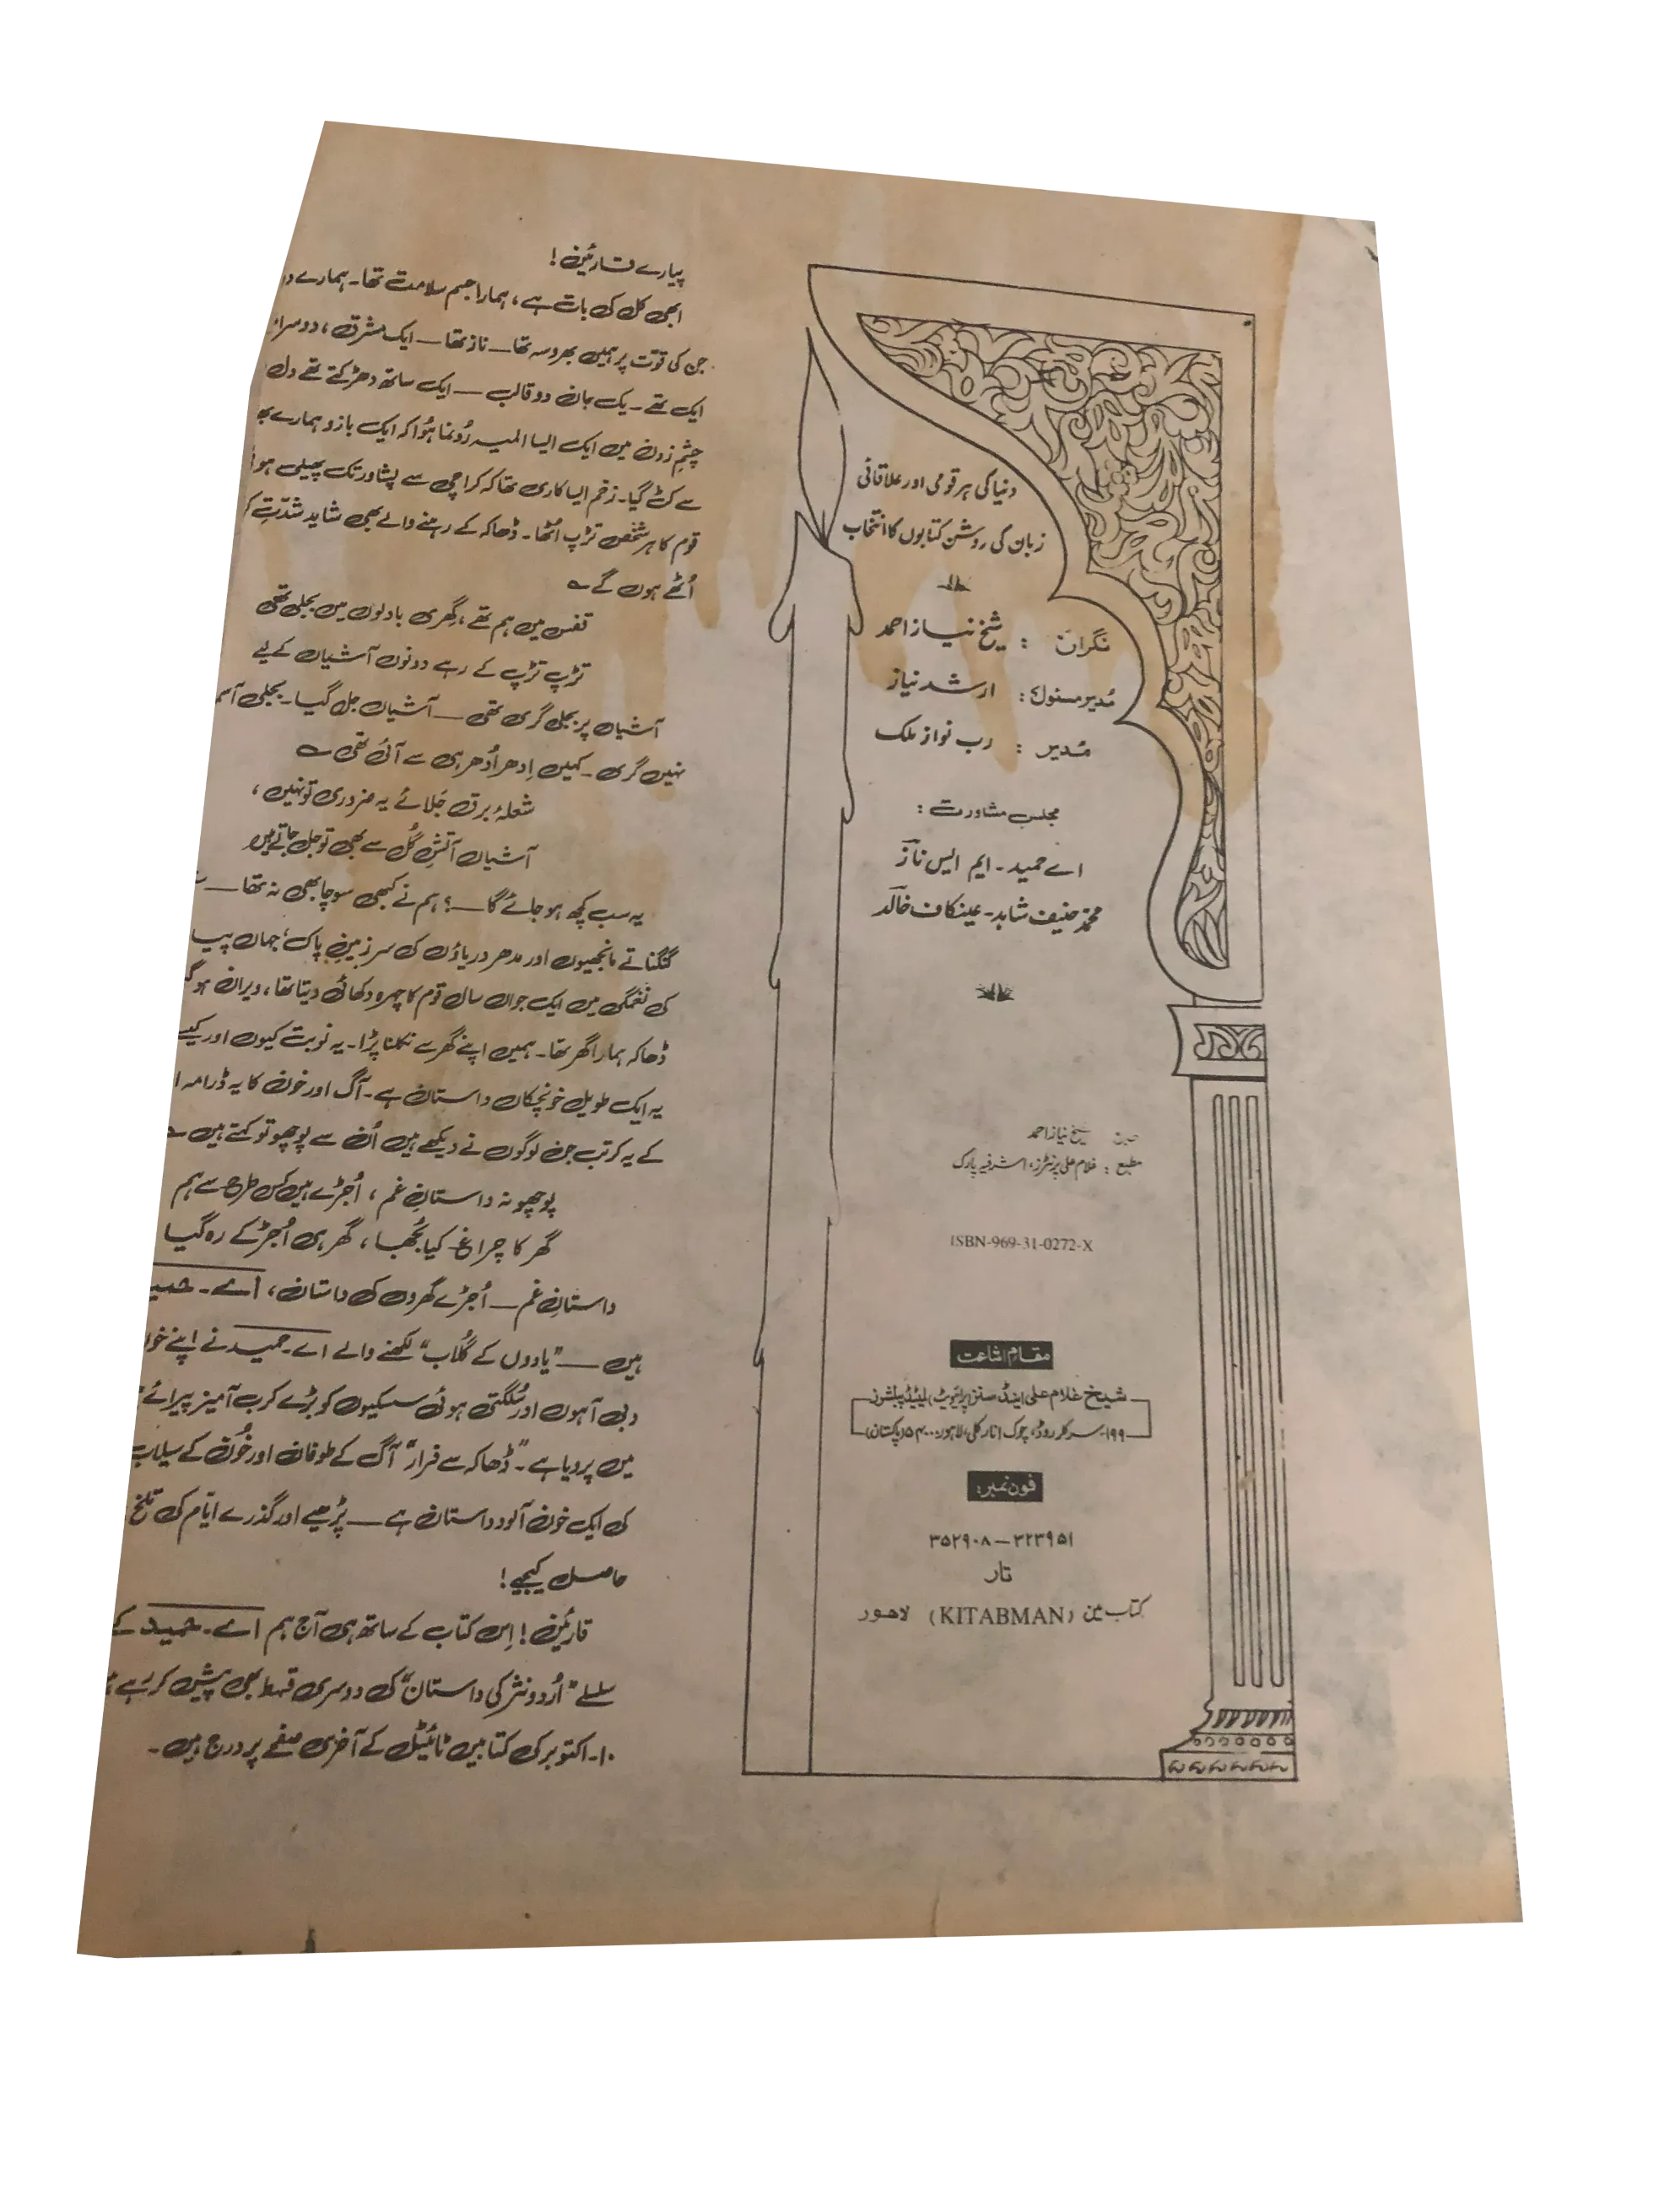 دنیا کی ہر قومی اور علاقائی
زبان کی روشن کتابوں کا انتخاب
نگران : شیخ نیاز احمد
مُدیر مسئول : ارشد نیاز
مُدیر : رب نواز ملک
مجلسِ مشاورت :
اے حمید - ایم ایس نازؔ
محمد حنیف شاہد - عینکاف خالدؔ
شیخ نیاز احمد
مطبع : غلام علی پرنٹرز، اشرفیہ پارک
ISBN-969-31-0272-X
مقامِ اشاعت
شیخ غلام علی اینڈ سنز (پرائیویٹ) لمیٹڈ پبلشرز
۱۹۹- سرکلر روڈ، چوک انارکلی، لاہور ۵۴۰۰۰ (پاکستان)
فون نمبر:
۳۵۲۹۰۸ — ۳۲۳۹۵۱
تار
کتاب مین (KITABMAN) لاہور
پیارے قارئین !
ابھی کل کی بات ہے، ہمارا جسم سلامت تھا۔ ہمارے
جن کی قوّت پر ہمیں بھروسہ تھا — ناز تھا — ایک مشرق، دوسرا
ایک تھے۔ یک جان دو قالب — ایک ساتھ دھڑکتے تھے دل
چشمِ زدن میں ایک ایسا المیہ رُونما ہُوا کہ ایک بازو ہمارے
سے کٹ گیا۔ زخم ایسا کاری تھا کہ کراچی سے پشاور تک پھیلی
قوم کا ہر شخص تڑپ اُٹھا۔ ڈھاکہ کے رہنے والے بھی شاید شدّتِ
اُٹھے ہوں گے ؎
قفس میں ہم تھے، گھِری بادلوں میں بجلی تھی
تڑپ تڑپ کے رہے دونوں آشیاں کے لیے
آشیاں پر بجلی گری تھی — آشیاں جل گیا۔ بجلی
نہیں گری۔ کہیں اِدھر اُدھر ہی سے آئی تھی ؎
شعلۂ برق جَلائے یہ ضروری تو نہیں،
آشیاں آتشِ گُل سے بھی تو جل جاتے ہیں
یہ سب کچھ ہو جائے گا — ؟ ہم نے کبھی سوچا بھی نہ تھا —
گنگناتے مانجھیوں اور مدھر دریاؤں کی سرزمینِ پاک، جہاں
کی نغمگی میں ایک جواں سال قوم کا چہرہ دکھائی دیتا تھا، ویران
ڈھاکہ ہمارا گھر تھا۔ ہمیں اپنے گھر سے نکلنا پڑا۔ یہ نوبت کیوں اور
یہ ایک طویل خونچکاں داستان ہے۔ آگ اور خون کا یہ ڈرامہ
کے یہ کرتب جن لوگوں نے دیکھے ہیں اُن سے پوچھو تو کہتے ہیں ؎
پوچھو نہ داستانِ غم، اُجڑے ہیں کس طرح سے ہم
گھر کا چراغ کیا بُجھا، گھر ہی اُجڑ کے رہ گیا
داستانِ غم — اُجڑے گھروں کی داستان، اے۔ حمید
ہیں — "یادوں کے گلاب" لکھنے والے اے۔ حمید نے اپنے
دبی آہوں اور سُلگتی ہوئی سسکیوں کو بڑے کرب آمیز پیرائے
میں پرو دیا ہے۔ "ڈھاکہ سے فرار" آگ کے طوفان اور خُون کے سیلاب
کی ایک خون آلود داستان ہے — پڑھیے اور گذرے ایّام کی تلخ
حاصل کیجیے !
قارئین ! اِس کتاب کے ساتھ ہی آج ہم اے۔ حمید کے
سلسلے "اُردو نثر کی داستان" کی دوسری قسط بھی پیش کر رہے
۱۰۔ اکتوبر کی کتابیں ٹائیٹل کے آخری صفحے پر درج ہیں۔